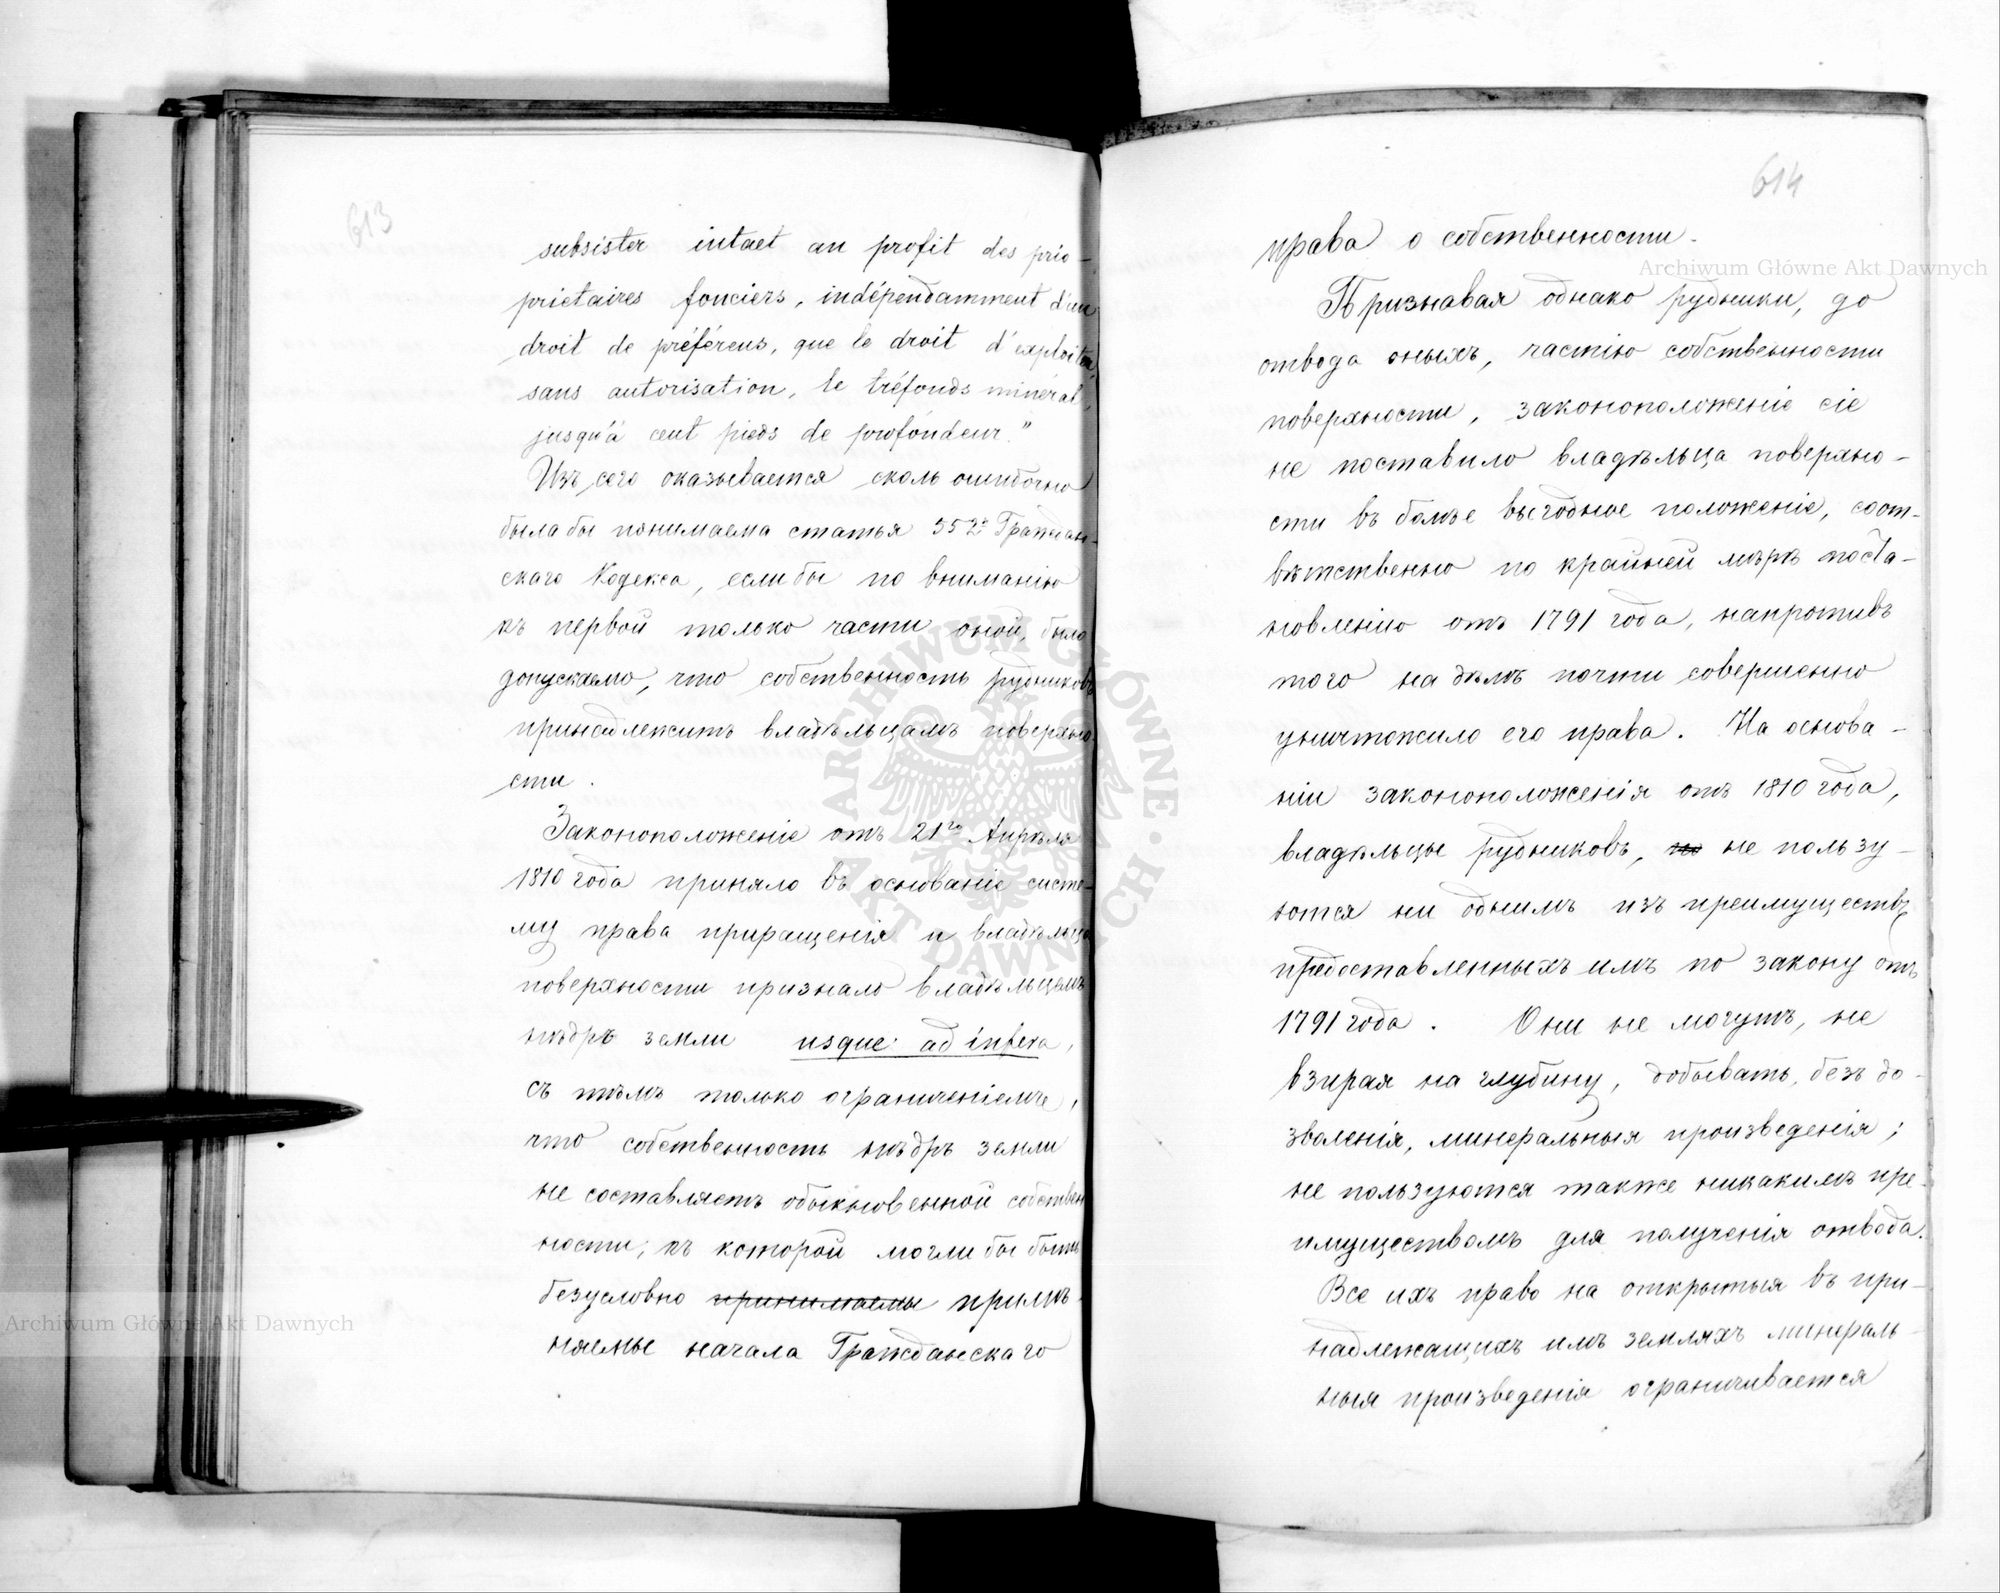 613
subsister intact au profit des pro-
priétaires fonciers, indépendamment d'un
droit de préférens, que le droit d'exploiter,
sans autorisation, le tréfonds minéral,
jusqu'à cent pieds de profondeur."
Изъ сего оказывается сколь ошибочно
была бы понимаема статья 552ѣ Граждан-
скаго Кодекса, если бы по вниманію
къ первой только части оной, было
допускаемо, что собственность рудниковъ
принадлежитъ владѣльцамъ поверхно-
сти.
Законоположеніе отъ 21го Апрѣля
1810 года приняло въ основаніе систе-
му права приращенія и владѣльца
поверхности признало владѣльцемъ
нѣдръ земли usque ad infera,
съ тѣмъ только ограниченіемъ,
что собственность нѣдръ земли
не составляетъ обыкновенной собствен
ности, къ которой могли бы быть
безусловно принимаемы примѣ-
няемые начала Гражданскаго
614
права о собственности.
Признавая однако рудники, до
отвода оныхъ, частію собственности
поверхности, законоположеніе сіе
не поставило владѣльца поверхно-
сти въ болѣе выгодное положеніе, соот-
вѣтственно по крайней мѣрѣ поста-
новленію отъ 1791 года, напротивъ
того на дѣлѣ почти совершенно
уничтожило его права. На основа-
ніи законоположенія отъ 1810 года,
владѣльцы рудниковъ, не пользу-
ются ни однимъ изъ преимуществъ,
предоставленныхъ имъ по закону отъ
1791 года. Они не могутъ, не
взирая на глубину, добывать, безъ до-
зволенія, минеральныя произведенія;
не пользуются также никакимъ пре-
имуществомъ для полученія отвода.
Все ихъ право на открытыя въ при-
надлежащихъ имъ земляхъ минераль-
ныя произведенія ограничивается
Archiwum Główne Akt Dawnych
Archiwum Główne Akt Dawnych
ARCHIWUM GŁÓWNE AKT DAWNYCH